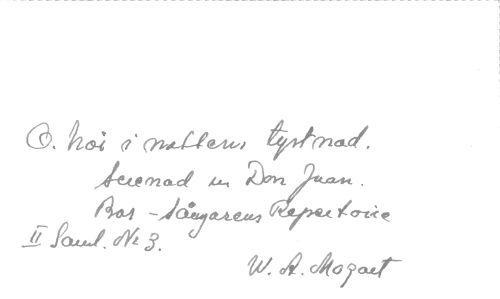 O. hör i nattens tystnad.
Serenad ur Don Juan.
Bas-Sångarens Repertoire
II Saml. No 3.
W. A. Mozart